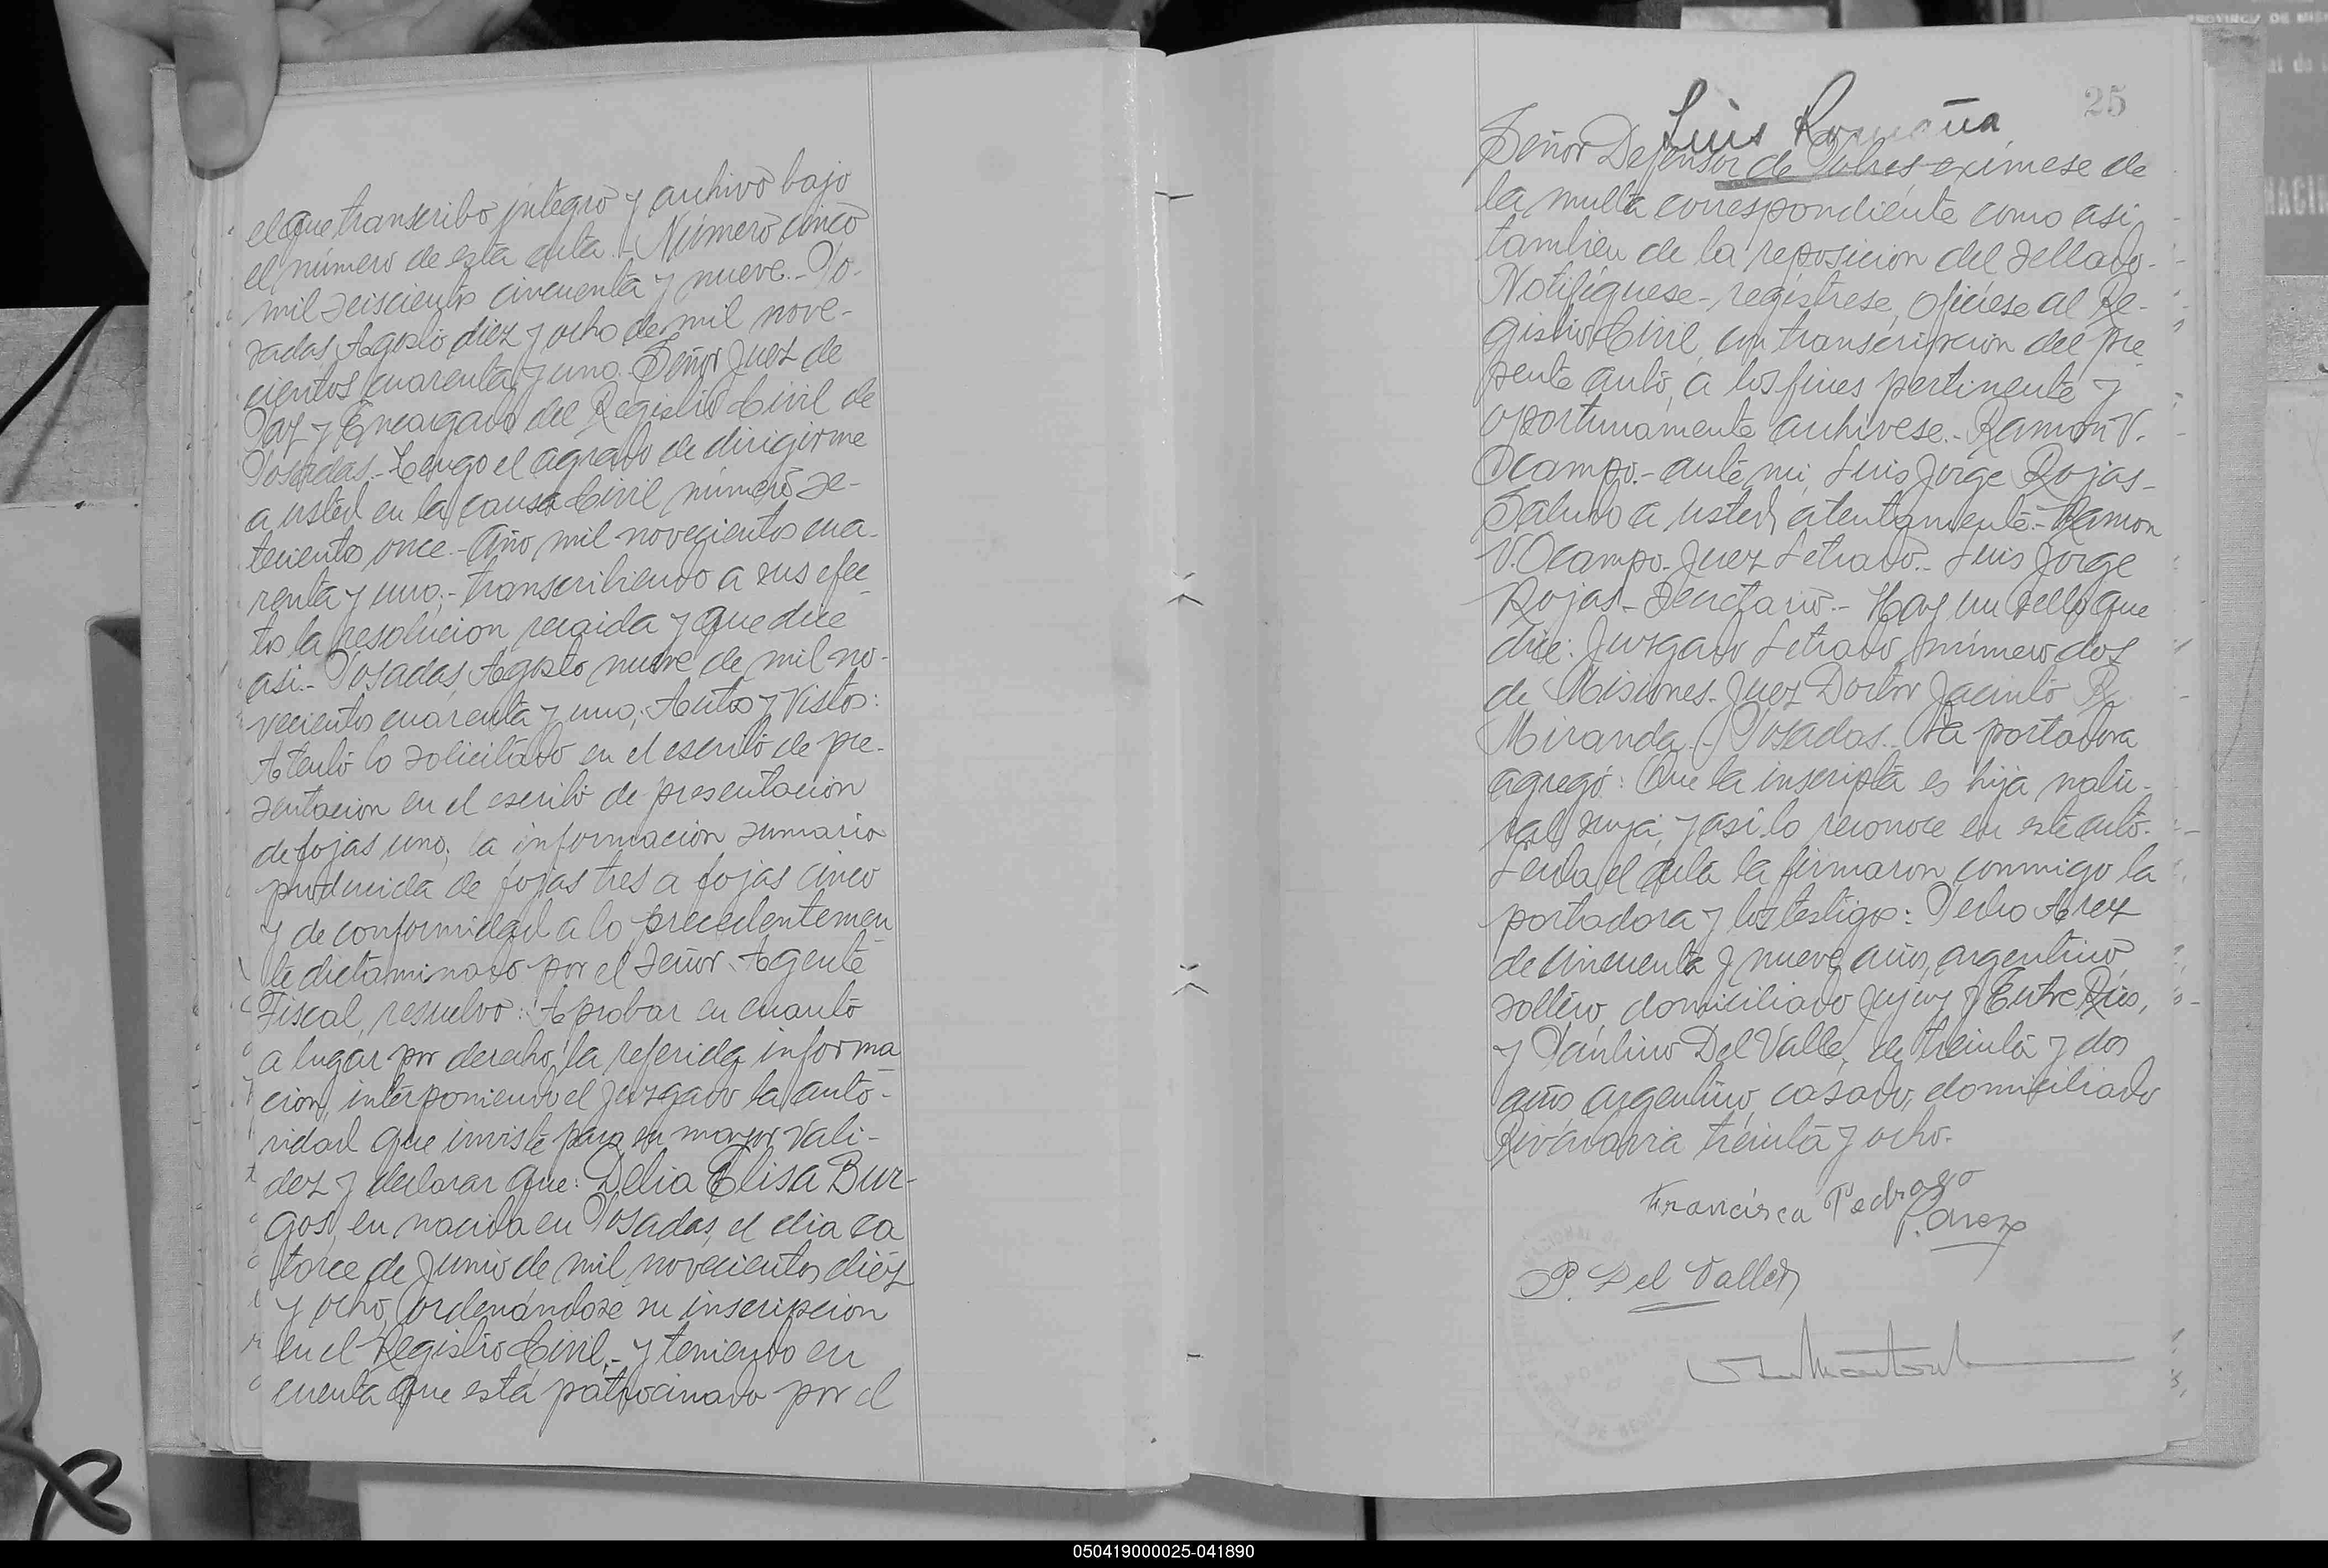 el que transcribo integro y archivo bajo
el número de esta acta.- Número cinco
mil seiscientos cincuenta y nueve.- Po-
sadas, Agosto diez y ocho de mil nove-
cientos cuarenta y uno. Señor Juez de
Paz y Encargado del Registro Civil de
Posadas.- Tengo el agrado de dirigirme
a usted en la causa Civil número se-
tecientos once.- Año mil novecientos cua-
renta y uno,- transcribiendo a sus efec-
tos la resolucion recaida y que dice
asi.- Posadas, Agosto nueve de mil no-
vecientos cuarenta y uno; Autos y Vistos:
Atento lo solicitado en el escrito de pre-
sentacion en el escrito de presentacion
de fojas uno; la informacion sumaria
producida de fojas tres a fojas cinco
y de conformidad a lo precedentemen
te dictaminado por el señor Agente
Fiscal, resuelvo: Aprobar en cuanto
a lugar por derecho, la referida informa
cion, interponiendo el Juzgado la auto-
ridad que inviste para su mayor vali-
dez y declarar que: Delia Elisa Bur-
gos, en nacida en Posadas, el dia ca
torce de Junio de mil novecientos diez
y ocho, ordenándose su inscripcion
en el Registro Civil,- y teniendo en
cuenta que está patrocinado por el
25
Luis Romaña
Señor Defensor de Pobres exímese de
la multa correspondiente como asi
tambien de la reposicion del sellado.-
Notifíquese- regístrese, ofíciese al Re-
gistro Civil, con transcripcion del pre
sente auto, a los fines pertinente y
oportunamente archivese.- Ramon V.
Ocampo.- ante mi, Luis Jorge Rojas-
Saludo a usted, atentamente.- Ramon
V. Ocampo- Juez Letrado.- Luis Jorge
Rojas- Secretario.- Hay un sello que
dice: Juzgado Letrado, número dos
de Misiones- Juez Doctor Jacinto R.
Miranda.- Posadas.- La portadora
agregó: Que la inscripta es hija natu-
ral suya, y asi lo reconoce en este acto.
Leida el acta la firmaron conmigo la
portadora y los testigos: Pedro Arez
de cincuenta y nueve años, argentino,
soltero, domiciliado Jujuy y Entre Rios,
y Paulino Del Valle, de treinta y dos
años, argentino, casado, domiciliado
Rivadavia treinta y ocho.
Francisca Pedrozo
P. Arez
P. Del Valle
050419000025-041890